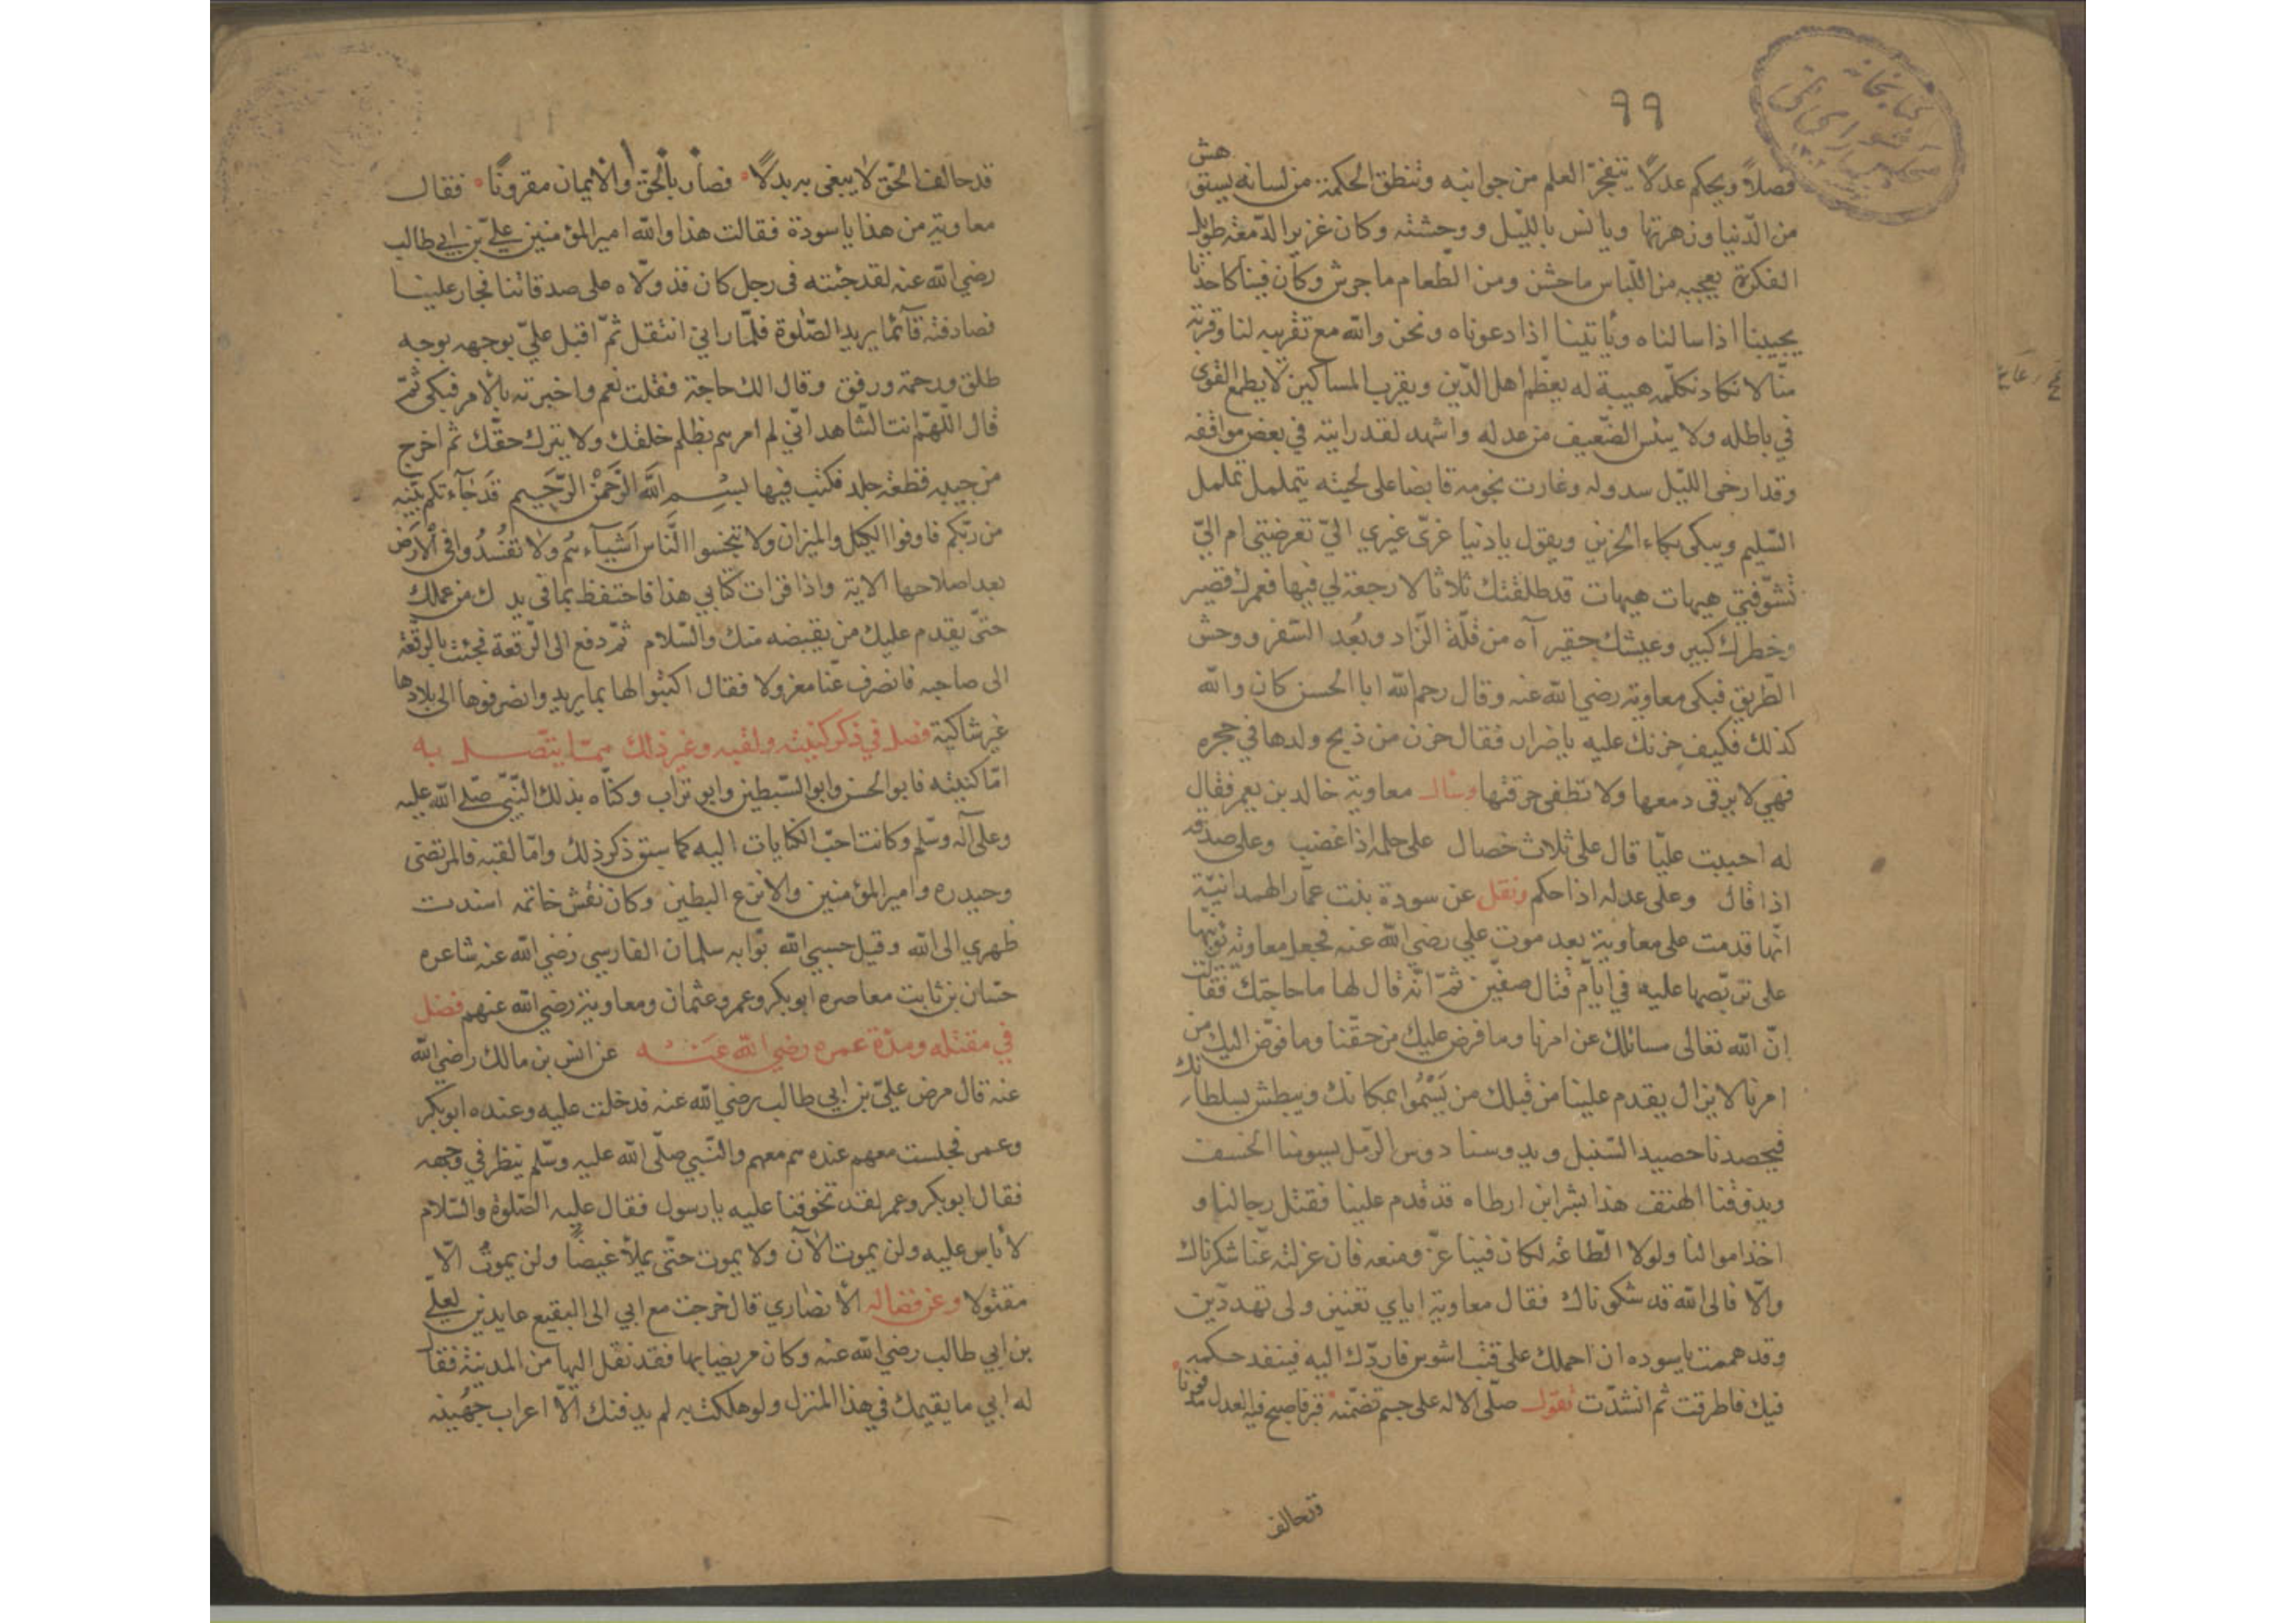 ٩٩
كتابخانه مجلس شوراى ملى
فصلاً ويحكم عدلاً يتفجّر العلم من جوانبه وتنطق الحكمة من لسانه يستوحش
من الدّنيا وزهرتها ويانس بالليّل ووحشته وكان غزير الدّمعة طويل
الفكرة يعجبه من اللّباس ماخشن ومن الطّعام ماجرش وكان فينا كاحدنا
يجيبنا اذا سالناه وياتينا اذا دعوناه ونحن والله مع تقريبه لنا وقربه
منّا لا نكاد نكلّمه هيبة له يعظّم اهل الدّين ويقرب المساكين لا يطمع القوى
في باطله ولا ييئس الضّعيف من عدله واشهد لقد رايته في بعض مواقفه
وقد ارخى الليّل سدوله وغارت نجومه قابضا على لحيته يتململ تململ
السّليم ويبكى بكاء الحزين ويقول يا دنيا غرّى غيري اليّ تعرضتي ام اليّ
تشوّفتي هيهات هيهات قد طلقتك ثلاثا لا رجعة لي فيها فعمرك قصير
وخطرك كبير وعيشك حقير آه من قلّة الزّاد وبُعد السّفر ووحش
الطّريق فبكى معاوية رضي الله عنه وقال رحم الله ابا الحسن كان والله
كذلك فكيف حزنك عليه يا ضرار فقال حزن من ذبح ولدها في حجره
فهي لا يرقى دمعها ولا تطفى حرقتها وسال معاوية خالد بن يعمر فقال
له احببت عليّا قال على ثلاث خصال على حلمه اذا غضب وعلى صدقه
اذا قال وعلى عدله اذا حكم ونقل عن سودة بنت عمّار الهمدانيّة
انّها قدمت على معاوية بعد موت علي رضي الله عنه فجعل معاوية يؤنّبها
على تربّصها عليه في ايّام قتال صفّين ثمّ انّه قال لها ما حاجتك فقالت
انّ الله تعالى مسائلك عن امرنا وما فرض عليك من حقّنا وما فوّض اليك من
امرنا لا يزال يقدم علينا من قبلك من يَسْمُوا بمكانك ويبطش بسلطانك
فيحصدنا حصيد السّنبل ويدوسنا دوس الرّمل يسومنا الخسف
ويذوقنا الهتف هذا بشر ابن ارطاه قد قدم علينا فقتل رجالنا و
اخذ اموالنا ولولا الطّاعة لكان فينا عزّ ومنعه فان عزلته عنّا شكرناك
والّا فالى الله قد شكوناك فقال معاوية اياي تعنين ولى تهدّدين
وقد هممت يا سوده ان احملك على قتب اشوس فاردّك اليه فينفد حكمه
فيك فاطرقت ثم انشدّت تقول صلّى الاله على جسم تضمّنه قبر فاصبح فيه العدل مدفونا
قد حالف
قد حالف الحق لا يبغى به بدلاً فصار بالحقّ والايمان مقرونًا فقال
معاوية من هذا يا سودة فقالت هذا والله امير المؤمنين عليّ بن ابي طالب
رضي الله عنه لقد جئته في رجل كان قد ولّاه على صدقاتنا فجار علينا
فصادفته قآئما يريد الصّلوة فلمّا راني انتقل ثمّ اقبل عليّ بوجهه بوجه
طلق ورحمة ورفق وقال الك حاجة فقلت نعم واخبرته بالامر فبكى ثمّ
قال اللّهمّ انت الشّاهد انّي لم امرهم بظلم خلقك ولا بترك حقّك ثم اخرج
من جيبه قطعة جلد فكتب فيها بسم الله الرّحمن الرّحيم قد جآءتكم بيّنه
من ربّكم فاوفوا الكيل والميزان ولا تبخسوا النّاس اشيآءهم ولا تفسدوا في الارض
بعد اصلاحها الاية واذا قرات كتابي هذا فاحتفظ بما في يدك من عملك
حتّى يقدم عليك من يقبضه منك والسّلام ثمّ دفع الى الرّقعة فجئت بالرقعة
الى صاحبه فانصرف عنّا معزولا فقال اكتبوا لها بما يريد وانصرفوها الى بلادها
غير شاكية فصل في ذكر كنيته ولقبه وغير ذلك ممّا يتّصل به
امّا كنيته فابو الحسن وابو السّبطين وابو تراب وكنّاه بذلك النّبيّ صلّى الله عليه
وعلى آله وسلّم وكانت احبّ الكنايات اليه كما سبق ذكر ذلك وامّا لقبه فالمرتضى
وحيدره وامير المؤمنين والانزع البطين وكان نقش خاتمه اسندت
ظهري الى الله وقيل حسبي الله بوّابه سلمان الفارسي رضي الله عنه شاعره
حسّان بن ثابت معاصره ابو بكر وعمر وعثمان ومعاوية رضي الله عنهم فصل
في مقتله ومدّة عمره رضي الله عنه عن انس بن مالك رضي الله
عنه قال مرض عليّ بن ابي طالب رضي الله عنه فدخلت عليه وعنده ابو بكر
وعمر فجلست معهم عنده ثم معهم والنّبي صلّى الله عليه وسلّم ينظر في وجهه
فقال ابو بكر وعمر لقد تخوفنا عليه يا رسول فقال عليه الصّلوة والسّلام
لا باس عليه ولن يموت الآن ولا يموت حتّى يملأ غيضاً ولن يموت الّا
مقتولا وعن فضاله الانصاري قال خرجت مع ابي الى البقيع عايدين لعليّ
بن ابي طالب رضي الله عنه وكان مريضا بها فقد نقل اليها من المدينة فقال
له ابي ما يقيمك في هذا المنزل ولو هلكت به لم يدفنك الّا اعراب جُهينه